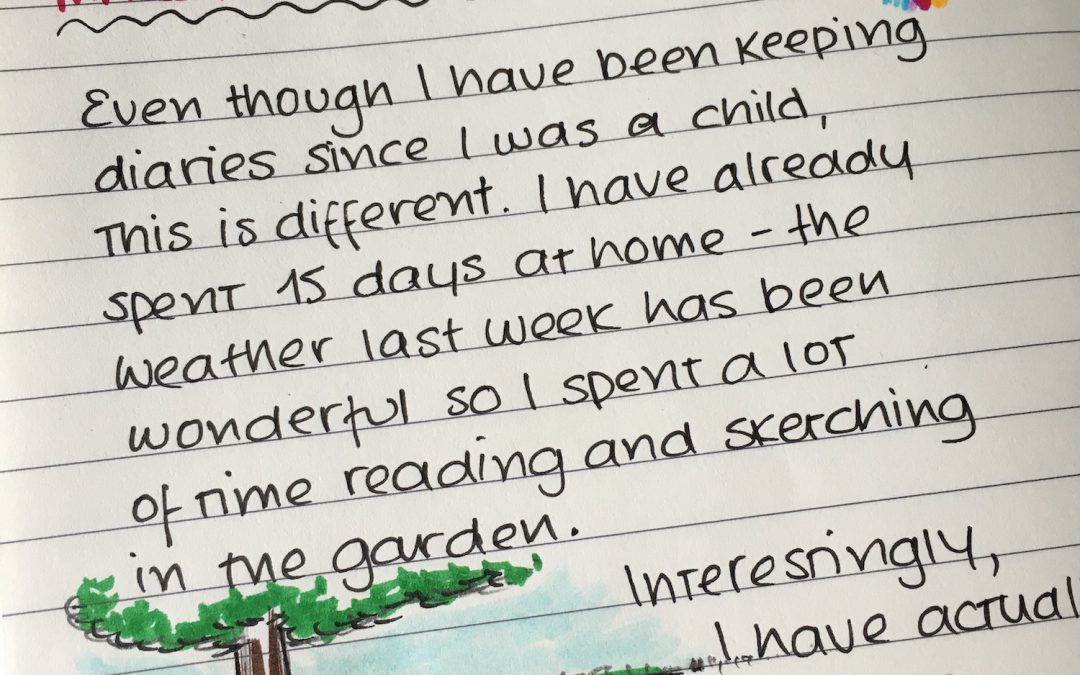 Even though I have been keeping
diaries since I was a child,
This is different. I have already
spent 15 days at home - the
weather last week has been
wonderful so I spent a lot
of time reading and sketching
in the garden.
Interestingly,
I have actual